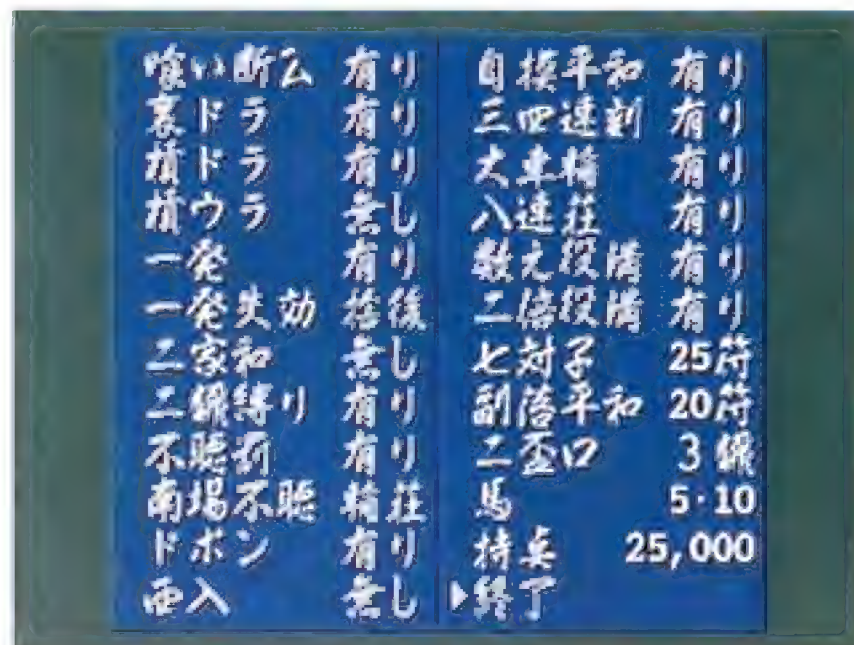 喰い断么 有り
裏ドラ 有り
槓ドラ 有り
槓ウラ 無し
一発 有り
一発失効 捨後
二家和 無し
二飜縛り 有り
不聴罰 有り
南場不聴 輪荘
ドボン 有り
西入 無し
自摸平和 有り
三四連刻 有り
大車輪 有り
八連荘 有り
数え役満 有り
二倍役満 有り
七対子 25符
副露平和 20符
二盃口 3飜
馬 5·10
持点 25,000
▶終了